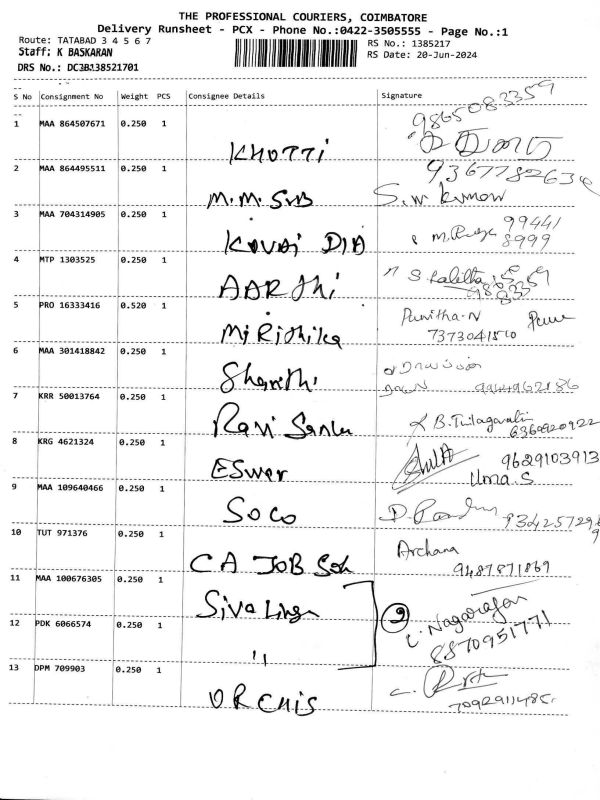 THE PROFESSIONAL COURIERS, COIMBATORE
Delivery Runsheet - PCX - Phone No.:0422-3505555 - Page No.:1
Route: TATABAD 3 4 5 6 7
RS No.: 1385217
Staff: K BASKARAN
RS Date: 20-Jun-2024
DRS No.: DC3B138521701
S No Consignment No Weight PCS Consignee Details Signature
1 MAA 864507671 0.250 1 KHOTTi 9865083359
2 MAA 864495511 0.250 1 M.M. SUB 9367782634
3 MAA 704314905 0.250 1 KOVAi DIA 99441
8999
4 MTP 1303525 0.250 1 AARThi S Lalitha
5 PRO 16333416 0.520 1 Mj Rithika Punitha-N
7373041510
6 MAA 301418842 0.250 1 Shanthi 9944962186
7 KRR 50013764 0.250 1 Ravi Sanker B. Thilagavathi
6360920922
8 KRG 4621324 0.250 1 ESwer 9629103913
Uma. S
9 MAA 109640466 0.250 1 SOCO
10 TUT 971376 0.250 1 CA JOB Archana
9487871869
11 MAA 100676305 0.250 1 Siva Linga
12 PDK 6066574 0.250 1 " 2 Nagarajan
8870951771
13 DPM 709903 0.250 1 ORCHiS
7092911485